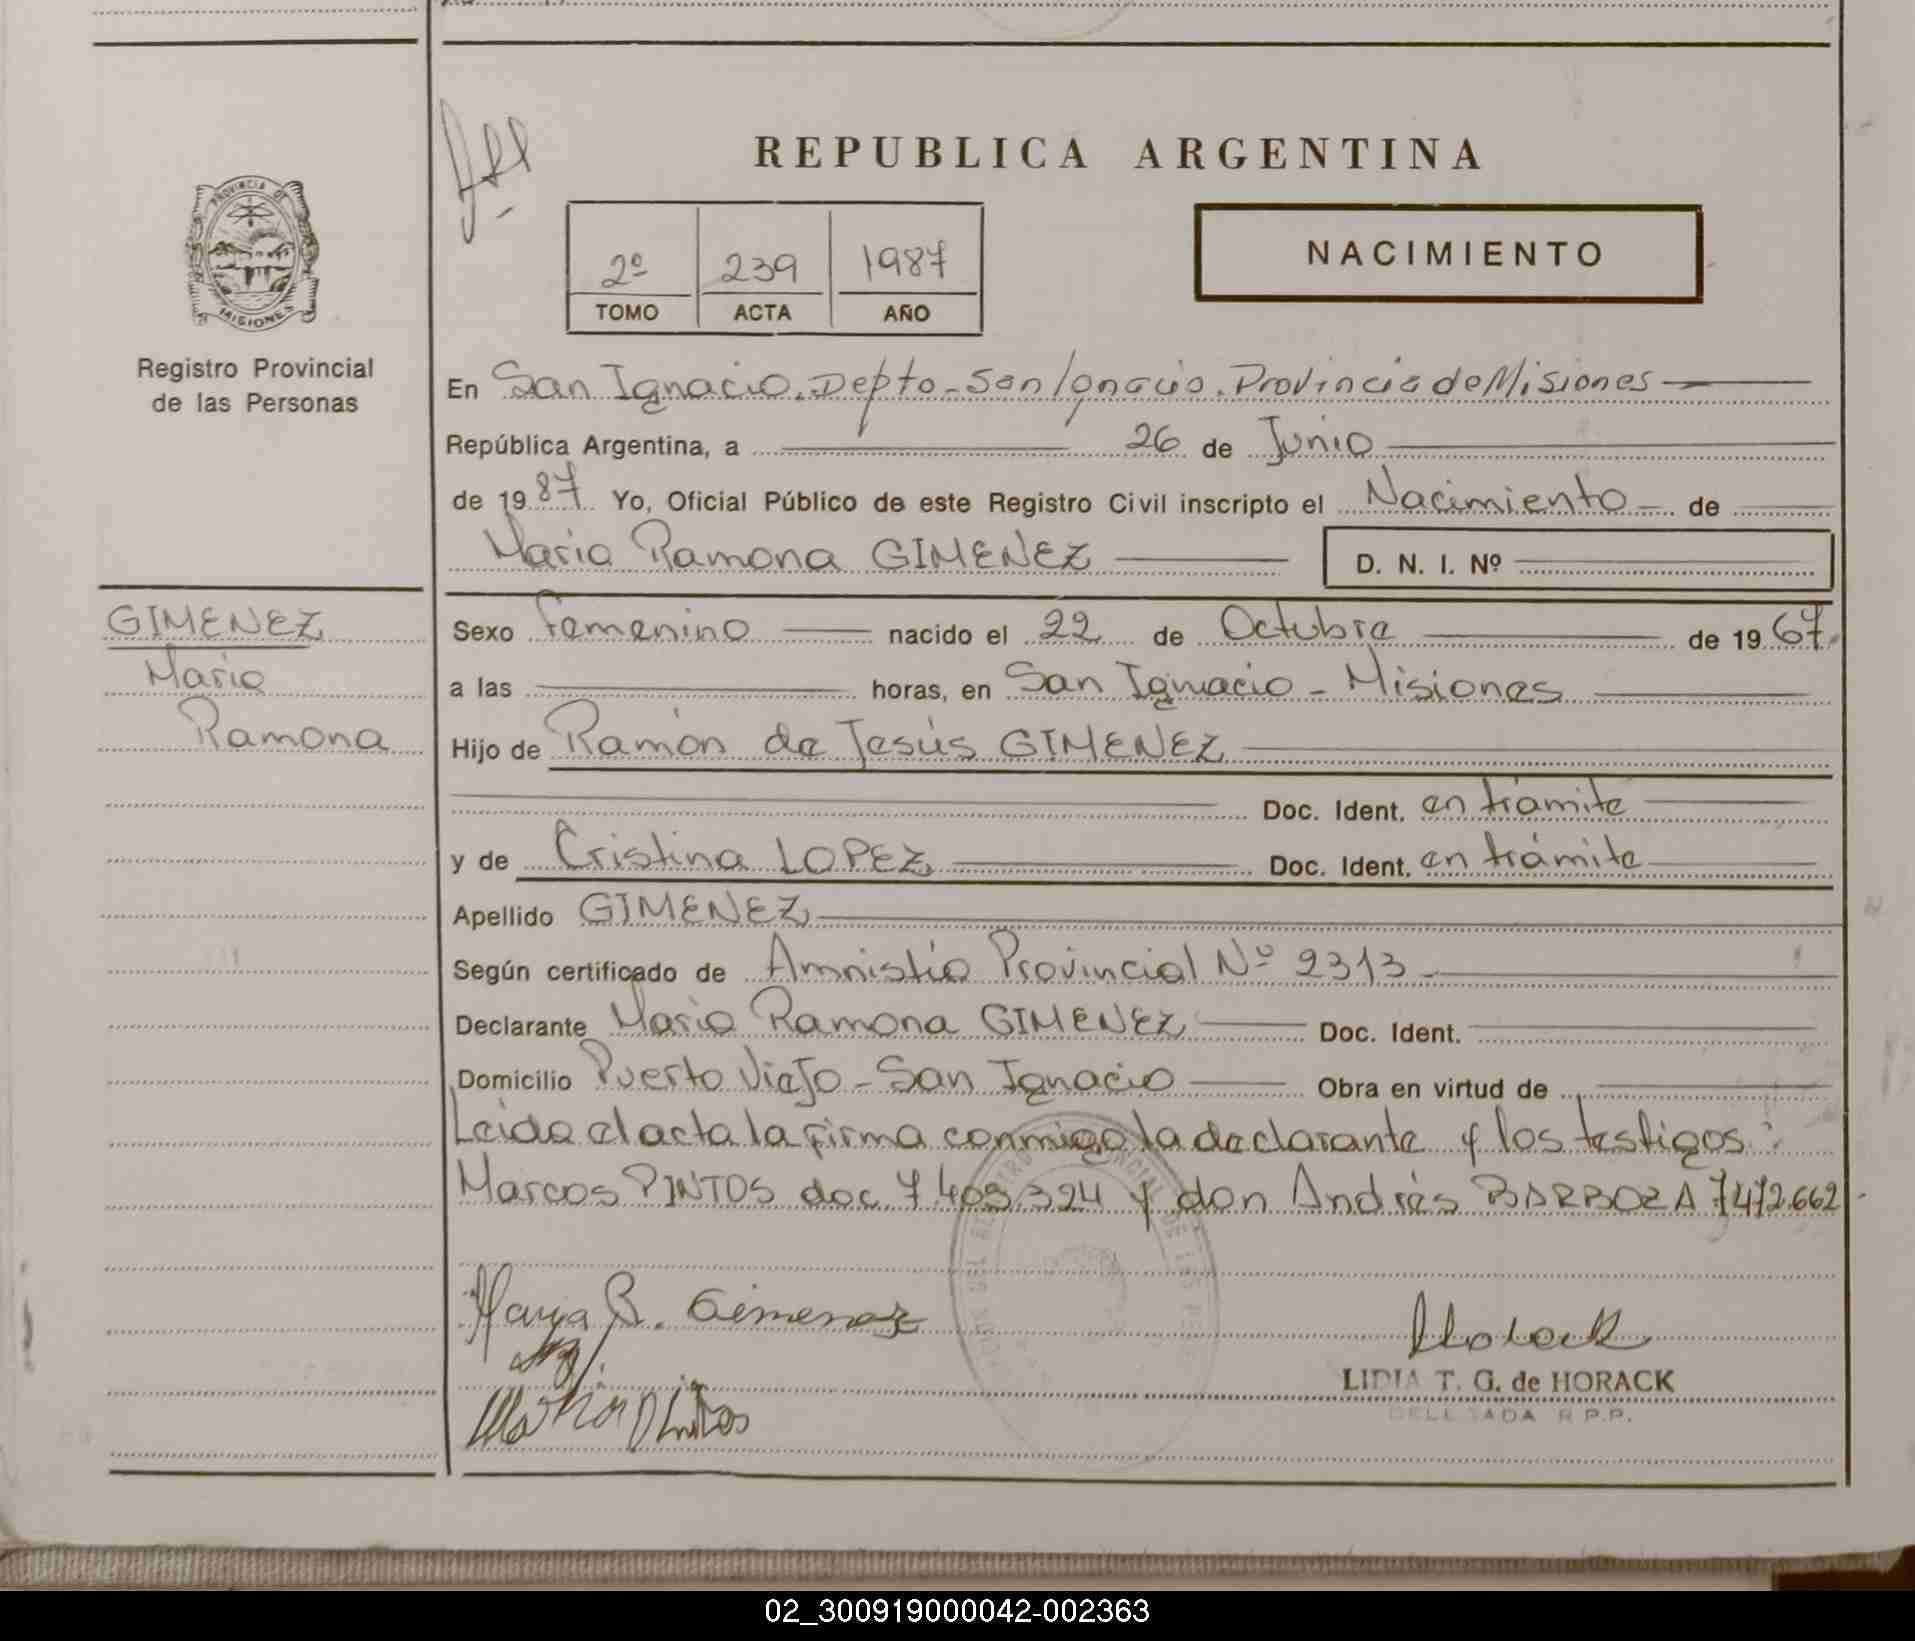 REPUBLICA ARGENTINA
PROVINCIA DE
MISIONES
2º 239 1987
TOMO ACTA AÑO
NACIMIENTO
Registro Provincial
de las Personas
En San Ignacio. Depto - San Ignacio. Provincia de Misiones
República Argentina, a 26 de Junio
de 1987 Yo, Oficial Público de este Registro Civil inscripto el Nacimiento de
Maria Ramona GIMENEZ D. N. I. Nº
GIMENEZ
Maria
Ramona
Sexo femenino nacido el 22 de Octubre de 1967.
a las horas, en San Ignacio - Misiones
Hijo de Ramón de Jesús GIMENEZ
Doc. Ident. en trámite
y de Cristina LOPEZ Doc. Ident. en trámite
Apellido GIMENEZ
Según certificado de Amnistía Provincial Nº 2313
Declarante Maria Ramona GIMENEZ Doc. Ident.
Domicilio Puerto Viejo - San Ignacio Obra en virtud de
Leida el acta la firma conmigo la declarante y los testigos:
Marcos PINTOS doc 7.409.324 y don Andrés BARBOZA 7472.662
Maria R. Gimenez
LIDIA T. G. de HORACK
DELEGADA R.P.P.
02_300919000042-002363